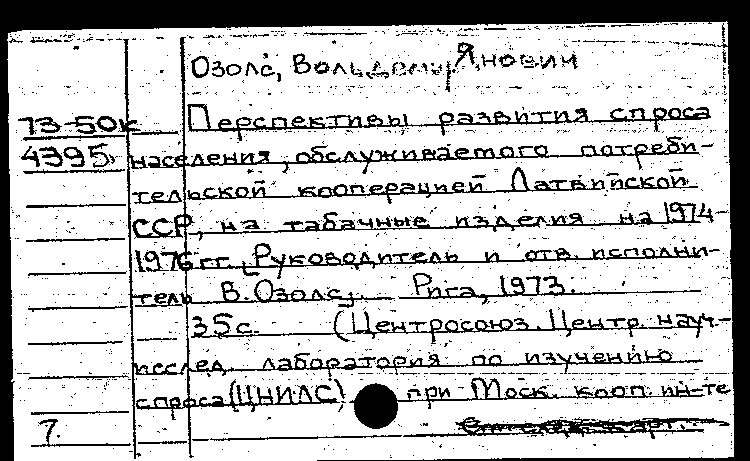 Озолс, Вольдемар Янович
73-50к Перспективы развития спроса
4395 населения, обслуживаемого потреби-
тельской кооперацией Латвийской
ССР, на табачные изделия на 1974-
1976 гг. [Руководитель и отв. исполни-
тель В. Озолс]. Рига, 1973.
35 с. (Центросоюз. Центр. науч.-
исслед. лаборатория по изучению
спроса (ЦНИЛС) при Моск. кооп. ин-те
7.